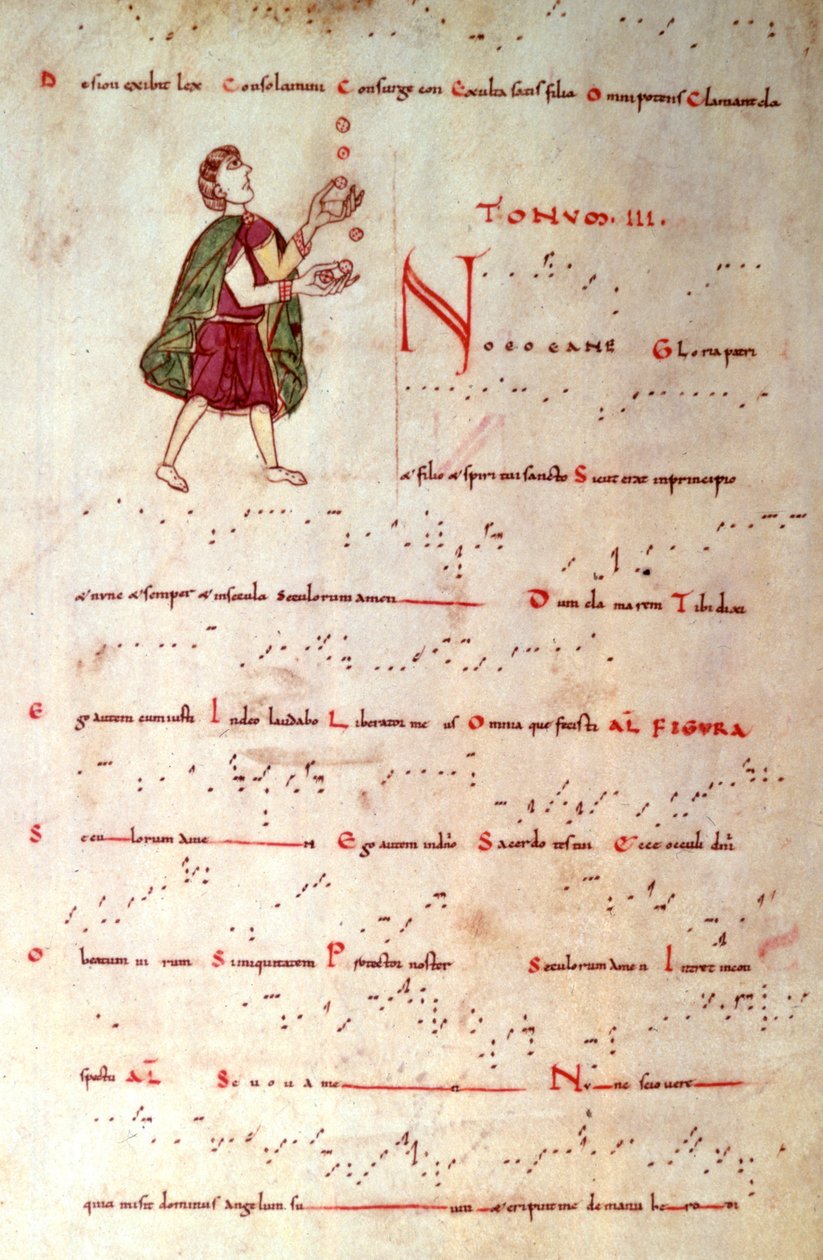 D e sion exibit lex Consolamini Consurge con Exulta satis filia Omnipotens Clamant cla
TONUM·III·
NOEOEANE Gloria patri
& filio & spiritui sancto Sicut erat inprincipio
& nunc & semper & insecula seculorum amen Dum cla marem Tibi dixi
Ego autem cum iusti Indeo laudabo Liberator me us Omnia que fecisti AL FIGURA
Seculorum ame n Ego autem indño Sacerdo tes tui Ecce occuli dñi
O beatum ui rum Siiniquitatem Protector noster Seculorum Amen Intret incon
spectu AL Seuouame n Nunc scio vere
quia misit dominus Angelum su um & eripuit me de manu he ro di